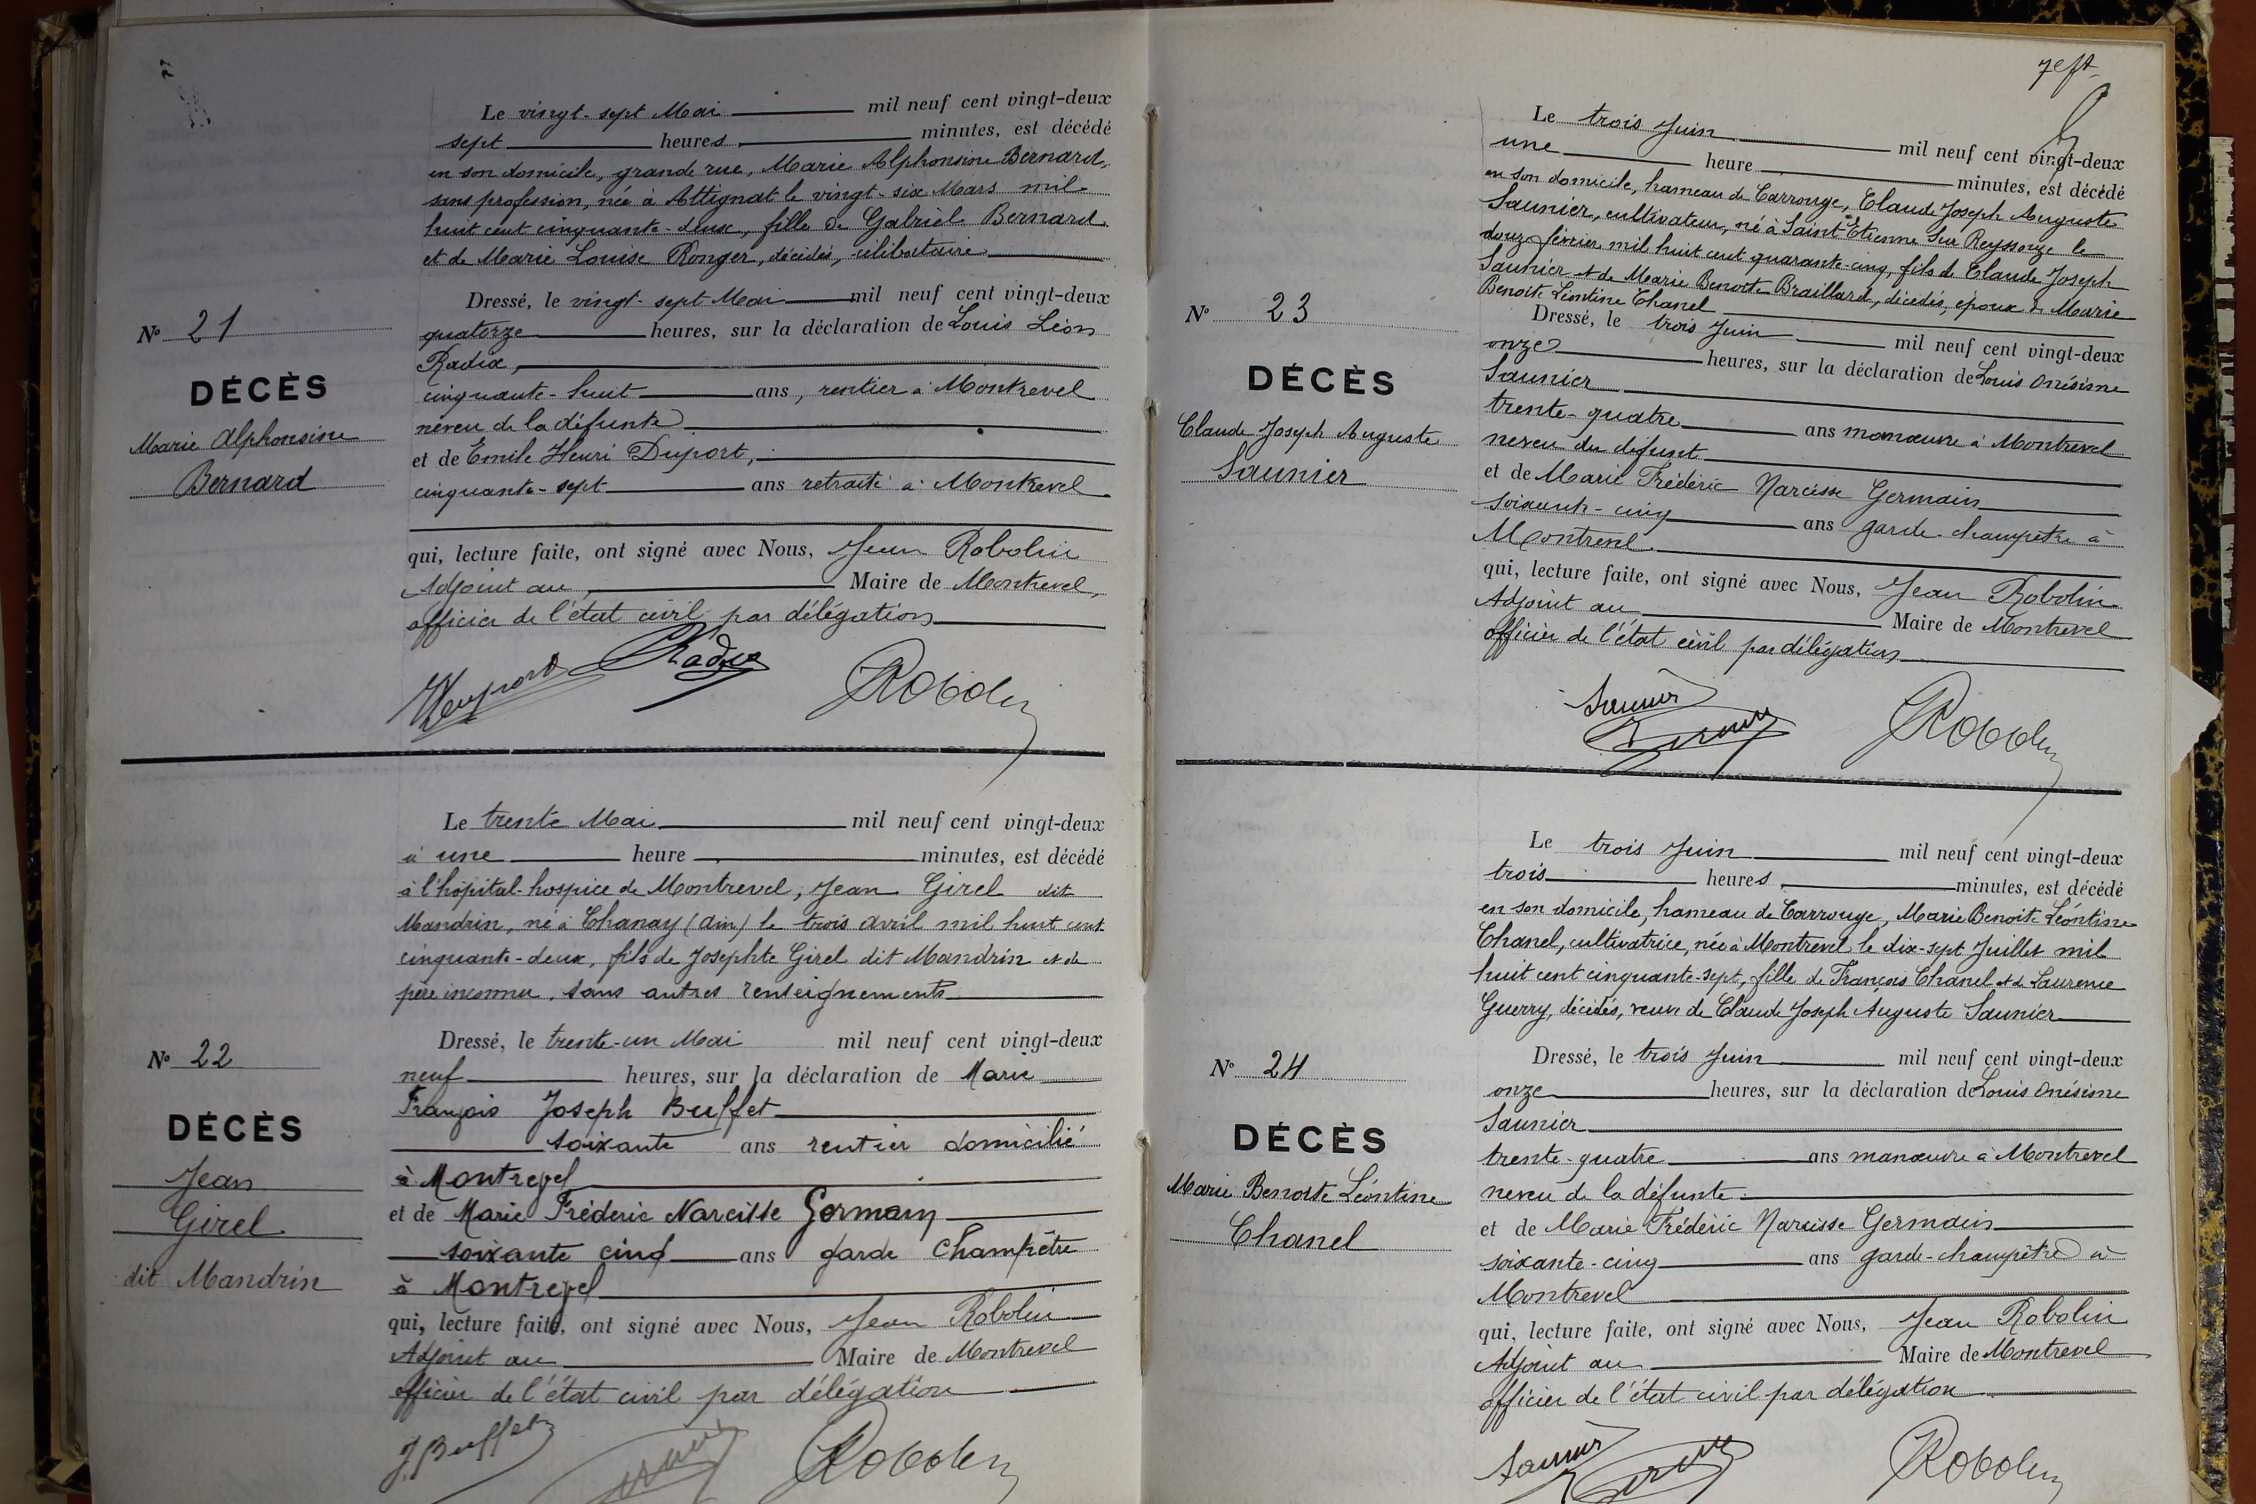 Le vingt-sept Mai mil neuf cent vingt-deux
sept heures, minutes, est décédé
en son domicile, grande rue, Marie Alphonsine Bernard,
sans profession, née à Attignat le vingt-six Mars mil
huit cent cinquante-deux, fille de Gabriel Bernard
et de Marie Louise Ronger, décédés, célibataire
Dressé, le vingt-sept Mai mil neuf cent vingt-deux
quatorze heures, sur la déclaration de Louis Léon
Radix,
cinquante-huit ans, rentier à Montrevel
neveu de la défunte
et de Emile Henri Duport,
cinquante-sept ans retraité à Montrevel
qui, lecture faite, ont signé avec Nous, Jean Robolin
Adjoint au, Maire de Montrevel,
officier de l'état civil par délégation
Nº 21
DÉCÈS
Marie Alphonsine
Bernard
Radix
Robolin
Le trente Mai mil neuf cent vingt-deux
à une heure, minutes, est décédé
à l'hôpital-hospice de Montrevel, Jean Girel dit
Mandrin, né à Chanay (Ain) le trois avril mil huit cent
cinquante-deux, fils de Josephte Girel dit Mandrin et de
père inconnu. sans autres renseignements
Dressé, le trente-un Mai mil neuf cent vingt-deux
neuf heures, sur la déclaration de Marie
François Joseph Buffet
soixante ans rentier domicilié
à Montrevel
et de Marie Fréderic Narcisse Germain
soixante cinq ans garde Champêtre
à Montrevel
qui, lecture faite, ont signé avec Nous, Jean Robolin
Adjoint au Maire de Montrevel
officier de l'état civil par délégation
Nº 22
DÉCÈS
Jean
Girel
dit Mandrin
J. Buffet
Robolin
Le trois Juin mil neuf cent vingt-deux
une heure, minutes, est décédé
en son domicile, hameau de Carrouge, Claude Joseph Auguste
Saunier, cultivateur, né à Saint-Etienne sur Reyssouze le
douze février mil huit cent quarante-cinq, fils de Claude Joseph
Saunier et de Marie Benoite Braillard, décédés, époux de Marie
Benoite Léontine Chanel
Dressé, le trois Juin mil neuf cent vingt-deux
onze heures, sur la déclaration de Louis Onésime
Saunier
trente-quatre ans manœuvre à Montrevel
neveu du défunt
et de Marie Frédéric Narcisse Germain
soixante-cinq ans garde-champêtre à
Montrevel
qui, lecture faite, ont signé avec Nous, Jean Robolin
Adjoint au Maire de Montrevel
officier de l'état civil par délégation
Nº 23
DÉCÈS
Claude Joseph Auguste
Saunier
Saunier
Robolin
Le trois Juin mil neuf cent vingt-deux
trois heures, minutes, est décédé
en son domicile, hameau de Carrouge, Marie Benoite Léontine
Chanel, cultivatrice, née à Montrevel le dix-sept Juillet mil
huit cent cinquante-sept, fille de François Chanel et de Laurence
Guerry, décédés, veuve de Claude Joseph Auguste Saunier
Dressé, le trois Juin mil neuf cent vingt-deux
onze heures, sur la déclaration de Louis Onésime
Saunier
trente-quatre ans manœuvre à Montrevel
neveu de la défunte.
et de Marie Frédéric Narcisse Germain
soixante-cinq ans garde-champêtre à
Montrevel
qui, lecture faite, ont signé avec Nous, Jean Robolin
Adjoint au Maire de Montrevel
officier de l'état civil par délégation
Nº 24
DÉCÈS
Marie Benoite Léontine
Chanel
Saunier
Robolin